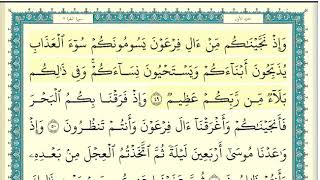 وَإِذْ نَجَّيْنَٰكُم مِّنْ ءَالِ فِرْعَوْنَ يَسُومُونَكُمْ سُوٓءَ ٱلْعَذَابِ
يُذَبِّحُونَ أَبْنَآءَكُمْ وَيَسْتَحْيُونَ نِسَآءَكُمْ وَفِى ذَٰلِكُم
بَلَآءٌ مِّن رَّبِّكُمْ عَظِيمٌ ٤٩ وَإِذْ فَرَقْنَا بِكُمُ ٱلْبَحْرَ
فَأَنجَيْنَٰكُمْ وَأَغْرَقْنَآ ءَالَ فِرْعَوْنَ وَأَنتُمْ تَنظُرُونَ ٥٠ وَإِذْ
وَٰعَدْنَا مُوسَىٰٓ أَرْبَعِينَ لَيْلَةً ثُمَّ ٱتَّخَذْتُمُ ٱلْعِجْلَ مِنۢ بَعْدِهِۦ